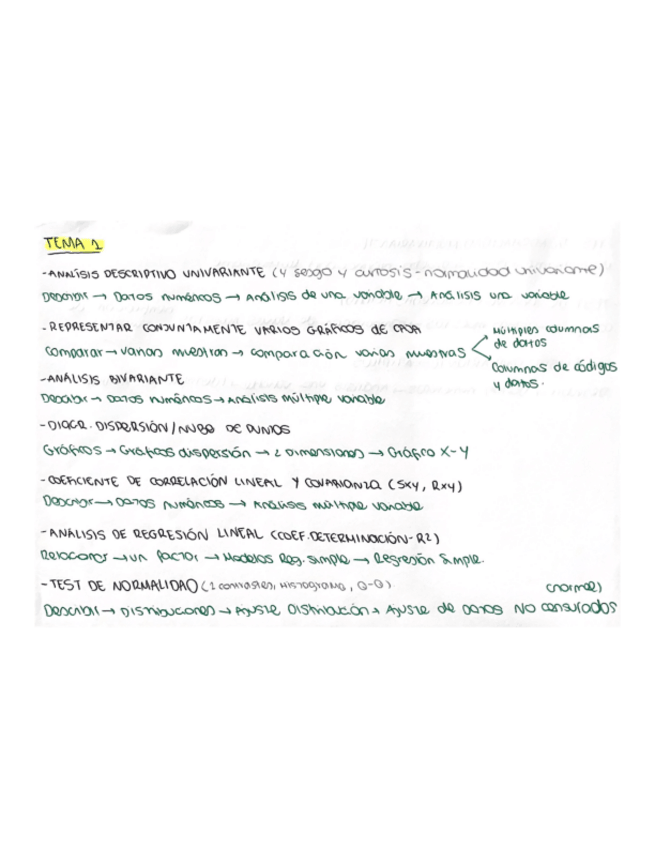 TEMA 1
-ANÁLISIS DESCRIPTIVO UNIVARIANTE (y sesgo y curtosis - normalidad univariante)
Describir → Datos numéricos → Análisis de una variable → Análisis una variable
-REPRESENTAR CONJUNTAMENTE VARIOS GRÁFICOS DE CAJA
Comparar → varias muestras → comparación varias muestras
Múltiples columnas
de datos
Columnas de códigos
y datos.
-ANÁLISIS BIVARIANTE
Describir → Datos numéricos → Análisis múltiple variable
-DIAGR. DISPERSIÓN/NUBE DE PUNTOS
Gráficos → Gráficos dispersión → 2 Dimensiones → Gráfico X-Y
-COEFICIENTE DE CORRELACIÓN LINEAL Y COVARIANZA (Sxy, Rxy)
Describir → Datos numéricos → Análisis múltiple variable
-ANÁLISIS DE REGRESIÓN LINEAL (COEF. DETERMINACIÓN-R2)
Relacionar → un factor → Modelos Reg. simple → Regresión Simple.
-TEST DE NORMALIDAD (2 contrastes, Histograma, Q-Q).
(normal)
Describir → Distribuciones → Ajuste Distribución → Ajuste de Datos NO censurados